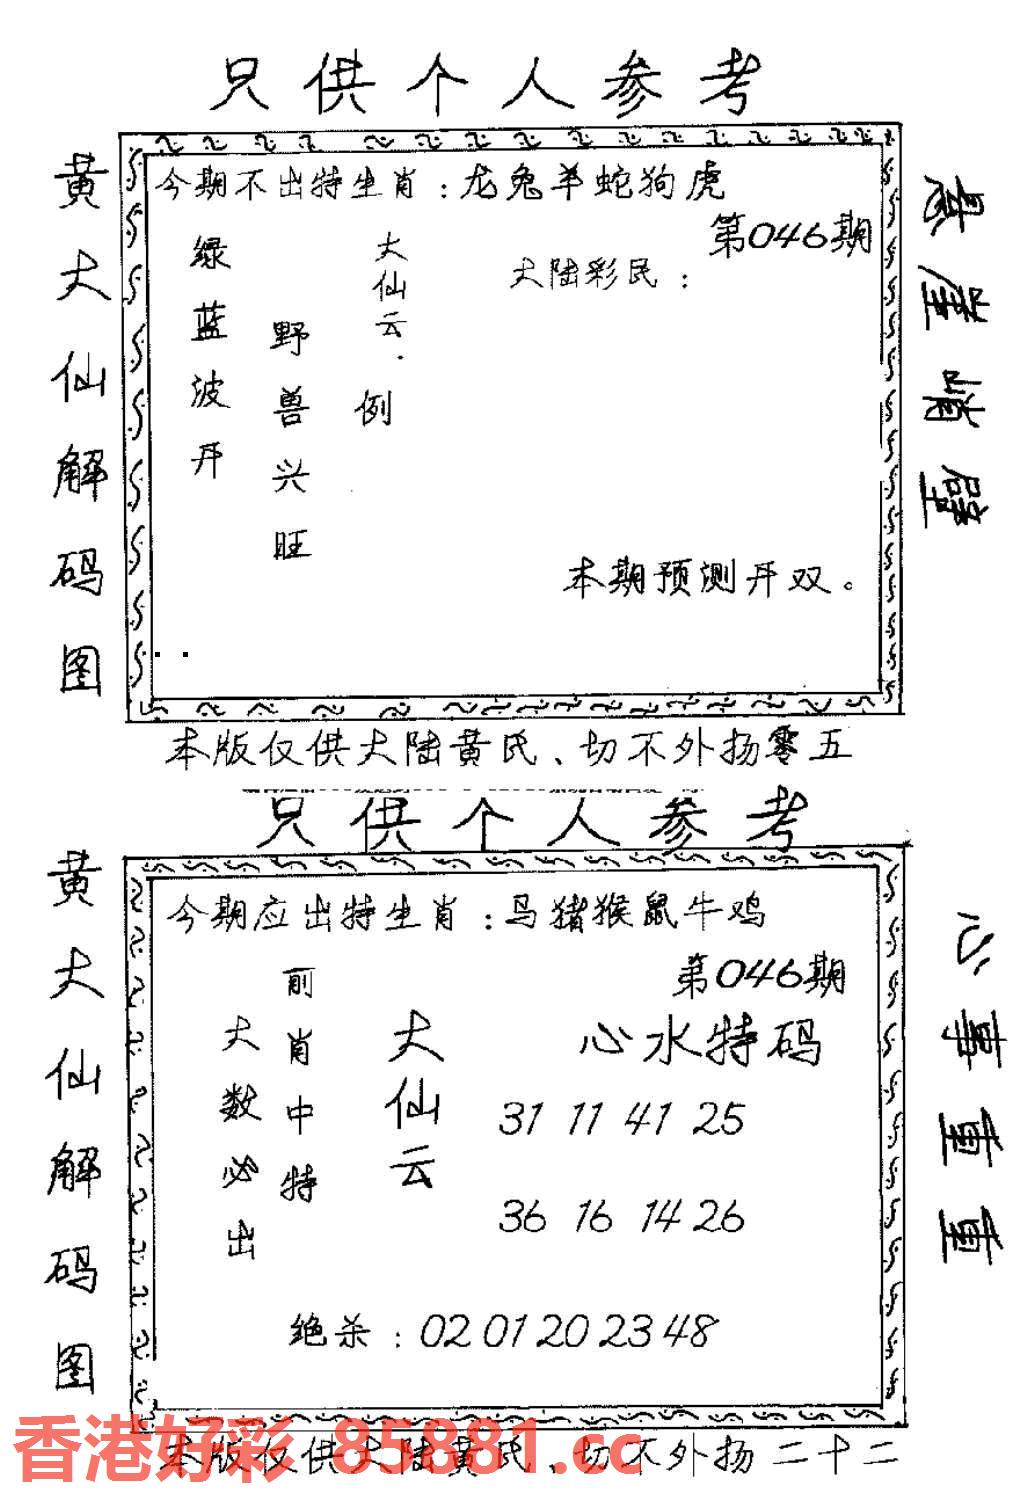 只供个人参考
黄大仙解码图
今期不出特生肖：龙兔羊蛇狗虎
第046期
大陆彩民：
大仙云．
例
野兽兴旺
绿蓝波开
本期预测开双。
悬崖峭壁
本版仅供大陆黄氏、切不外扬零五
只供个人参考
黄大仙解码图
今期应出特生肖：马猪猴鼠牛鸡
第046期
心水特码
大仙云
前肖中特
大数必出
31 11 41 25
36 16 14 26
绝杀：02 01 20 23 48
心事重重
香港好彩 85881.cc
本版仅供大陆黄氏、切不外扬二十二